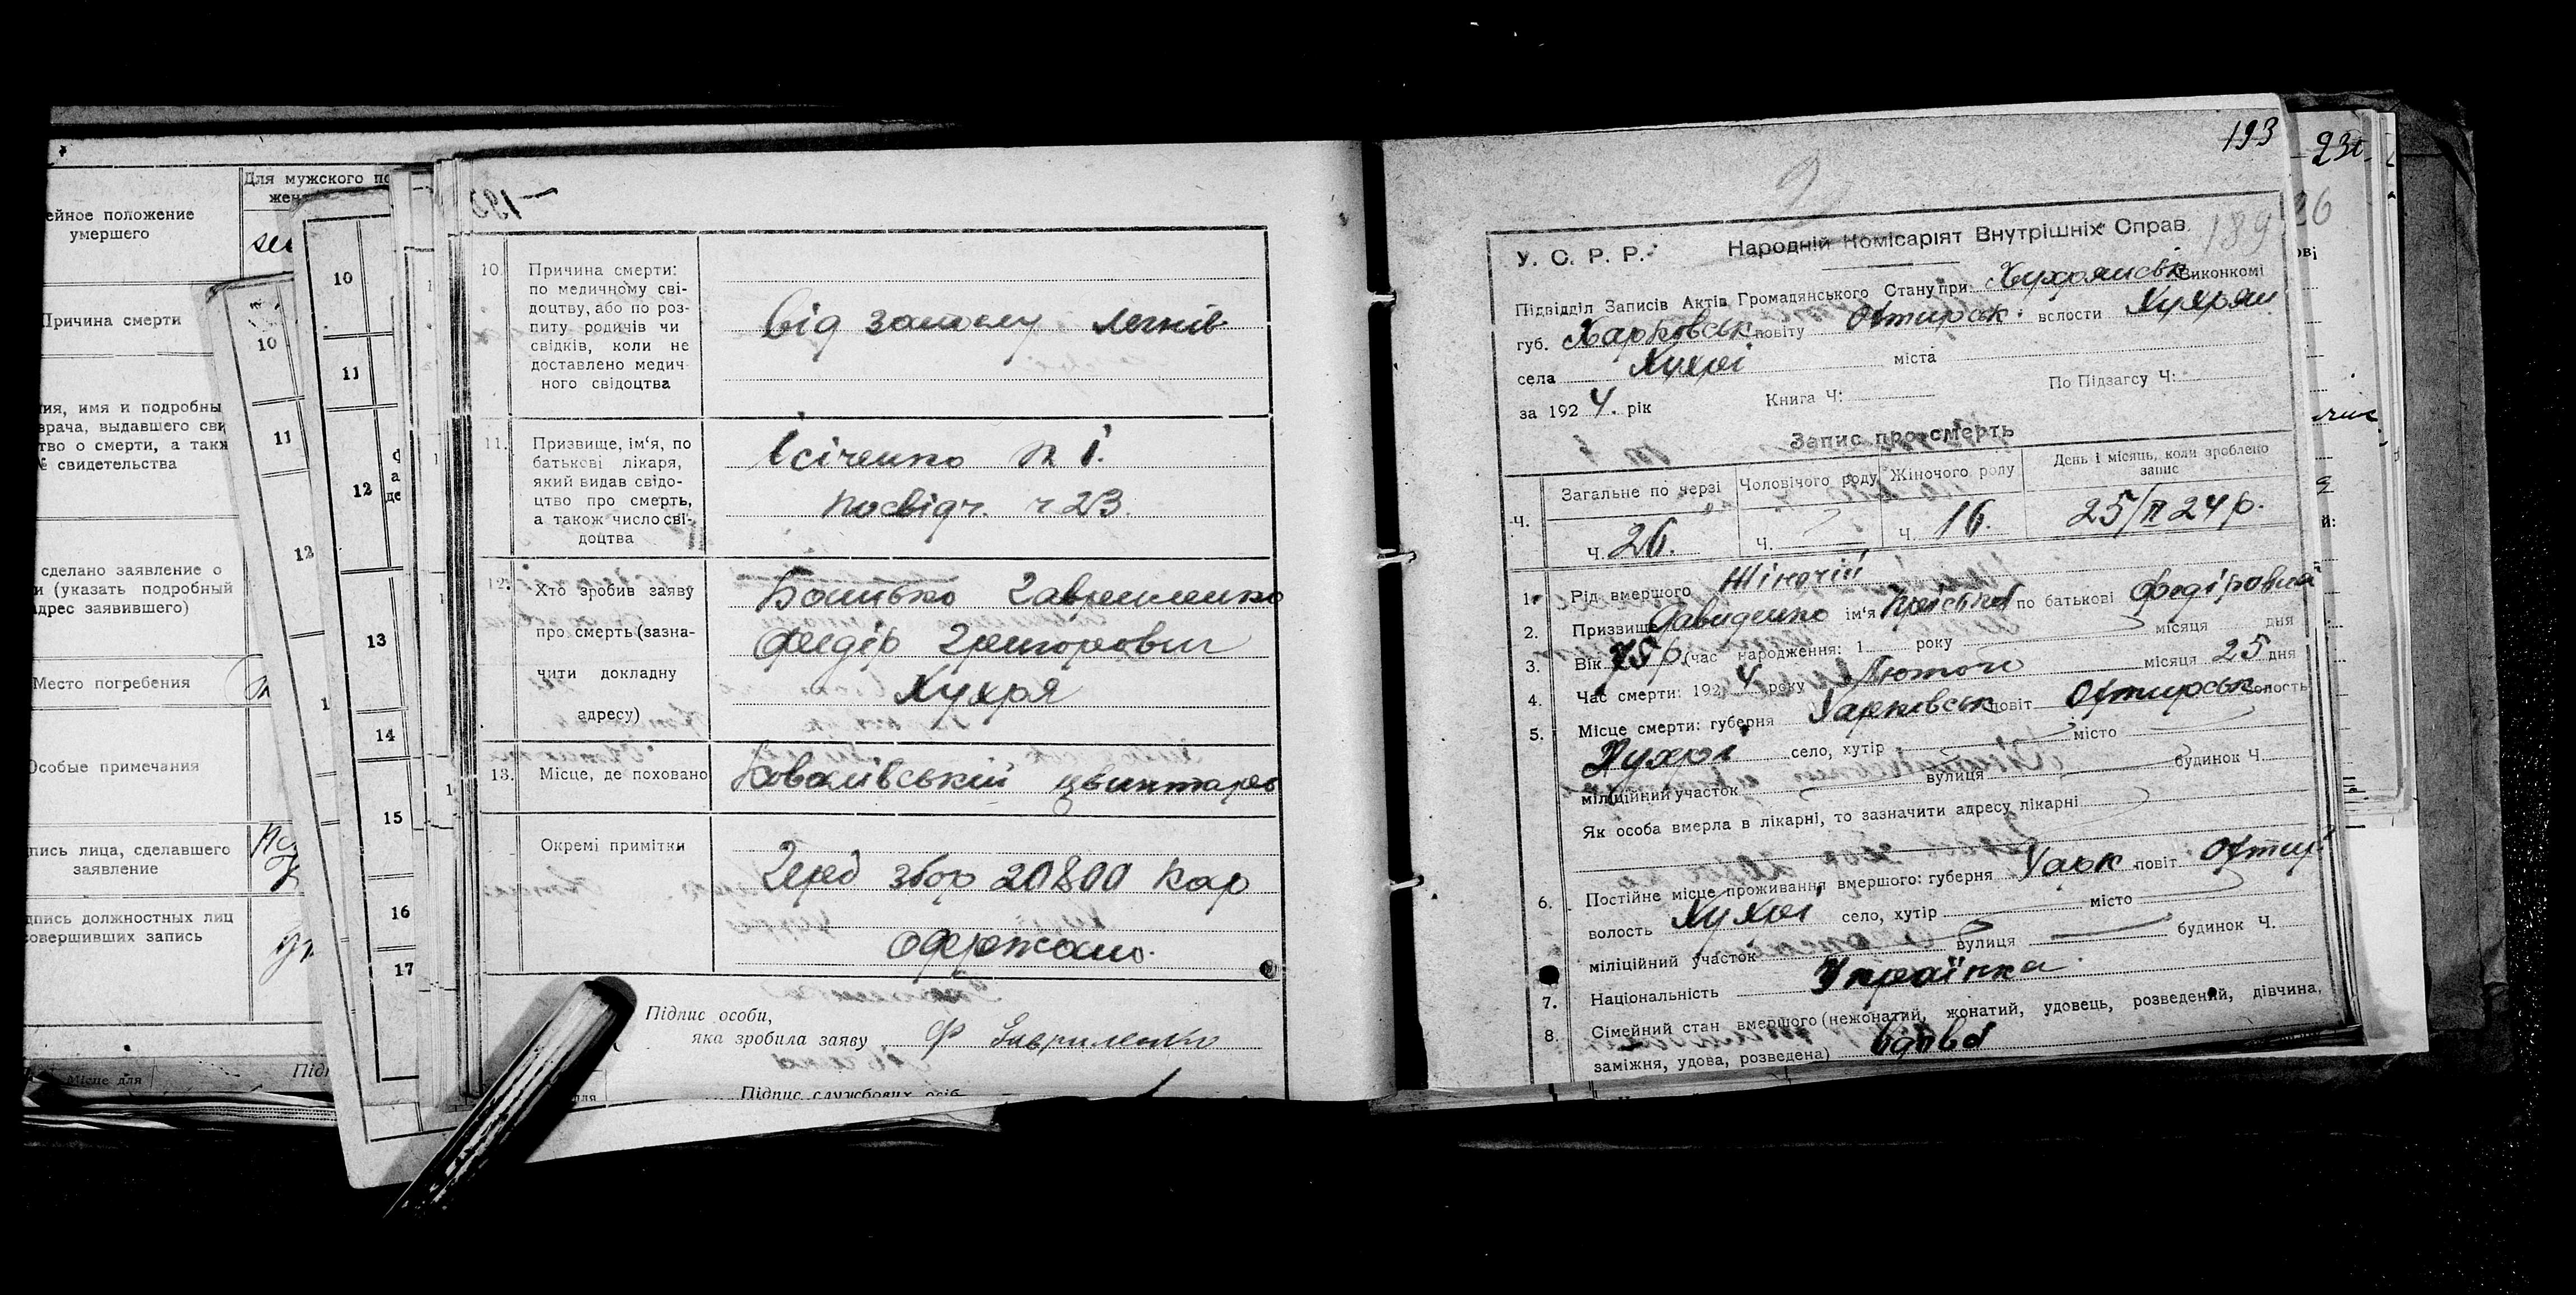 Для мужского по
ейное положение
умершего
Причина смерти
ия, имя и подробны
врача, выдавшего сви
тво о смерти, а такж
№ свидетельства
сделано заявление о
и (указать подробный
адрес заявившего)
Место погребения
Особые примечания
пись лица, сделавшего
заявление
дпись должностных лиц
совершивших запись
Місце для
10
11
12
1
10
11
12
13
14
15
16
17
10. Причина смерти:
по медичному сві-
доцтву, або по роз-
питу родичів чи
свідків, коли не
доставлено медич-
ного свідоцтва
від запалу легків
11. Призвище, ім'я, по
батькові лікаря,
який видав свідо-
цтво про смерть,
а також число сві-
доцтва
Ісіченко П І.
посвідч. ч 23.
12. Хто зробив заяву
про смерть (зазна-
чити докладну
адресу)
Батько Гавриленко
Федір Григорович
Хухря
13. Місце, де поховано
Ковалівський цвинтарь
Окремі примітки
Герб збор 20800 кар
одержано.
Підпис особи,
яка зробила заяву Ф Гавриленко
Підпис службових осіб
193
23
26
189
У. С. Р. Р. Народній Комісаріят Внутрішніх Справ.
Підвідділ Записів Актів Громадянського Стану при Хухрянськ Виконкомі
губ. Харковськ повіту Охтирськ. волости Хухрян
села Хухрі міста
за 1924. рік Книга Ч: По Підзагсу Ч:
Запис про смерть
Ч. Загальне по черзі Чоловічого роду Жіночого роду День і місяць, коли зроблено
запис
Ч. 26. Ч. Ч. 16. 25/II 24 р.
1. Рід вмершого Жіночій
2. Призвище Давиденко ім'я по батькові Федіровна
3. Вік 78 р. (час народження: 1 року місяця дня
4. Час смерти: 1924 року Лютого місяця 25 дня
5. Місце смерти: губерня Харківськ повіт Охтирськ волость
Хухрі село, хутір місто
міліційний участок вулиця будинок Ч.
Як особа вмерла в лікарні, то зазначити адресу лікарні
6. Постійне місце проживання вмершого: губерня Харк повіт Охтир
волость Хухрі село, хутір місто
міліційний участок вулиця будинок Ч.
7. Національність Українка
8. Сімейний стан вмершого (нежонатий, жонатий, удовець, розведений, дівчина,
заміжня, удова, розведена) вдова